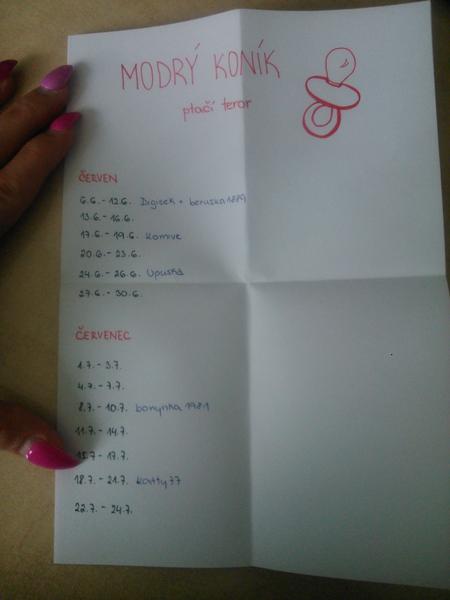 MODRÝ KONÍK
ptačí teror
ČERVEN
6.6. - 12.6. Digisek + beruska1889
13.6. - 16.6.
17.6. - 19.6. Komive
20.6. - 23.6.
24.6. - 26.6. Upuska
27.6. - 30.6.
ČERVENEC
1.7. - 3.7.
4.7. - 7.7.
8.7. - 10.7. bonynka 1981
11.7. - 14.7.
15.7 - 17.7.
18.7. - 21.7. Kavtty77
22.7. - 24.7.